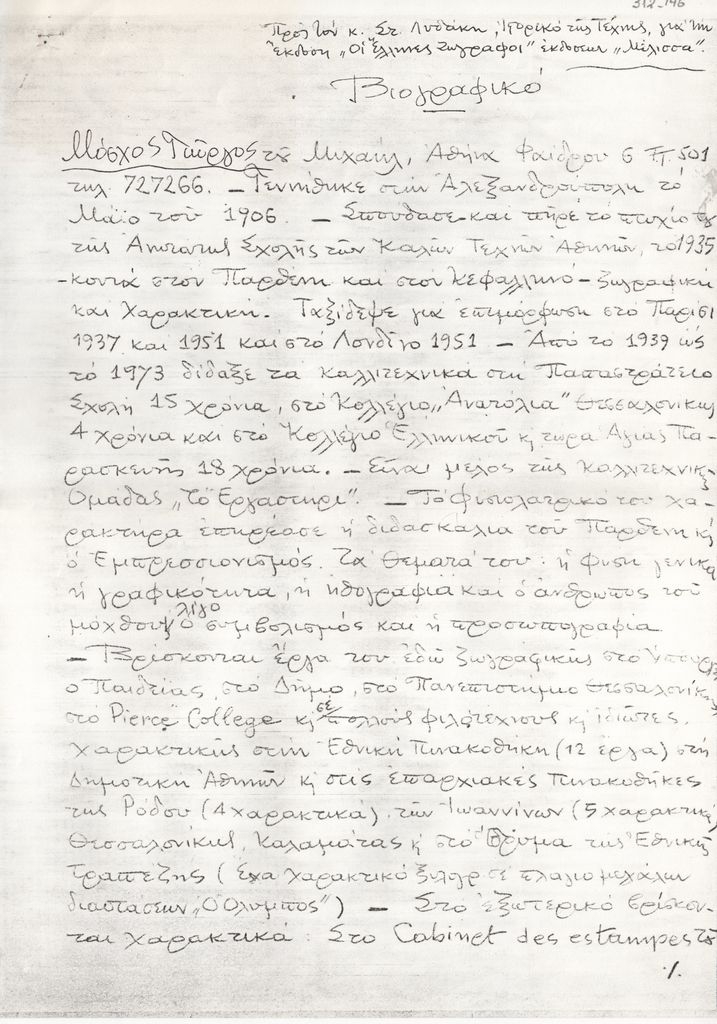 312-146
Πρός τόν κ. Στ. Λυδάκη, Ἱστορικό τῆς Τέχνης, γιά τήν
ἔκδοση „Οἱ Ἕλληνες Ζωγράφοι" ἐκδόσεων „Μέλισσα".
Βιογραφικό
Μόσχος Γιῶργος τοῦ Μιχαήλ, Ἀθήνα Φαίδρου 6 Τ.Τ. 501
τηλ. 727266. – Γεννήθηκε στήν Ἀλεξανδρούπολη τό
Μάϊο τοῦ 1906 – Σπούδασε καί πῆρε τό πτυχίο του
τῆς Ἀνωτάτης Σχολῆς τῶν Καλῶν Τεχνῶν Ἀθηνῶν, τό 1935
-κοντά στόν Παρθένη καί στόν Κεφαλληνό – ζωγραφική
καί χαρακτική. Ταξίδεψε γιά ἐπιμόρφωση στό Παρίσι
1937 καί 1951 καί στό Λονδίνο 1951 – Ἀπό τό 1939 ὡς
τό 1973 δίδαξε τά καλλιτεχνικά στή Παπαστράτειο
Σχολή 15 χρόνια, στό Κολλέγιο „Ἀνατόλια" Θεσσαλονίκης
4 χρόνια καί στό Κολλέγιο Ἑλληνικοῦ κ τώρα Ἁγίας Πα-
ρασκευῆς 18 χρόνια. – Εἶναι μέλος τῆς Καλλιτεχνικῆς
Ὁμάδας „Τό Ἐργαστήρι". – Τό φυσιολατρικό του χα-
ρακτήρα ἐπηρέασε ἡ διδασκαλία τοῦ Παρθένη κ
ὁ Ἐμπρεσσιονισμός. Τά θέματά του: ἡ φύση γενικά
ἡ γραφικότητα, ἡ ἠθογραφία καί ὁ ἄνθρωπος τοῦ
μόχθου, λίγο ὁ συμβολισμός καί ἡ προσωπογραφία
– Βρίσκονται ἔργα του ἐδῶ ζωγραφικῆς στό Ὑπουργεῖ
ο Παιδείας, στό Δῆμο, στό Πανεπιστήμιο Θεσσαλονίκης
στό Pierce College κ σέ πολλούς φιλότεχνους κ ἰδιῶτες.
Χαρακτικῆς στήν Ἐθνική Πινακοθήκη (12 ἔργα) στή
Δημοτική Ἀθηνῶν κ στίς ἐπαρχιακές Πινακοθῆκες
τῆς Ρόδου (4 χαρακτικά), τῶν Ἰωαννίνων (5 χαρακτικά)
Θεσσαλονίκης, Καλαμάτας κ στό Ἵδρυμα τῆς Ἐθνικῆς
Τραπέζης (ἕνα χαρακτικό ξυλογρ σέ πλάγιο μεγάλων
διαστάσεων „Ὁ Ὄλυμπος") – Στό ἐξωτερικό βρίσκον-
ται χαρακτικά: Στό Cabinet des estampes τοῦ
./.